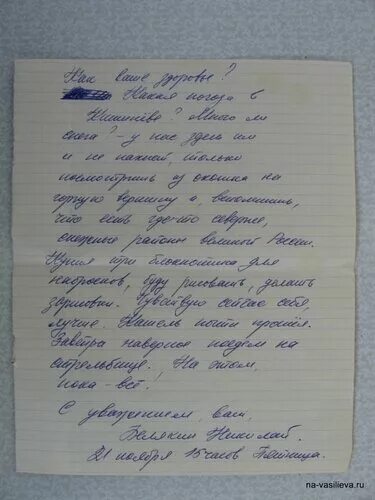 Как ваше здоровье?
Какая погода в
Кишинёве? Много ли
снега? – у нас здесь им
и не пахнет, только
посмотришь из окошка на
горную вершину а, вспомнишь,
что есть где-то северные,
снежные районы великой России.
Купил три блокнотика для
набросков, буду рисовать, делать
зарисовки. Чувствую сейчас себя,
лучше. Кашель почти прошёл.
Завтра наверное поедем на
стрельбище. На этом,
пока – всё!
С уважением, ваш
Белякин Николай.
21 ноября 15 часов Пятница.
na-vasilieva.ru